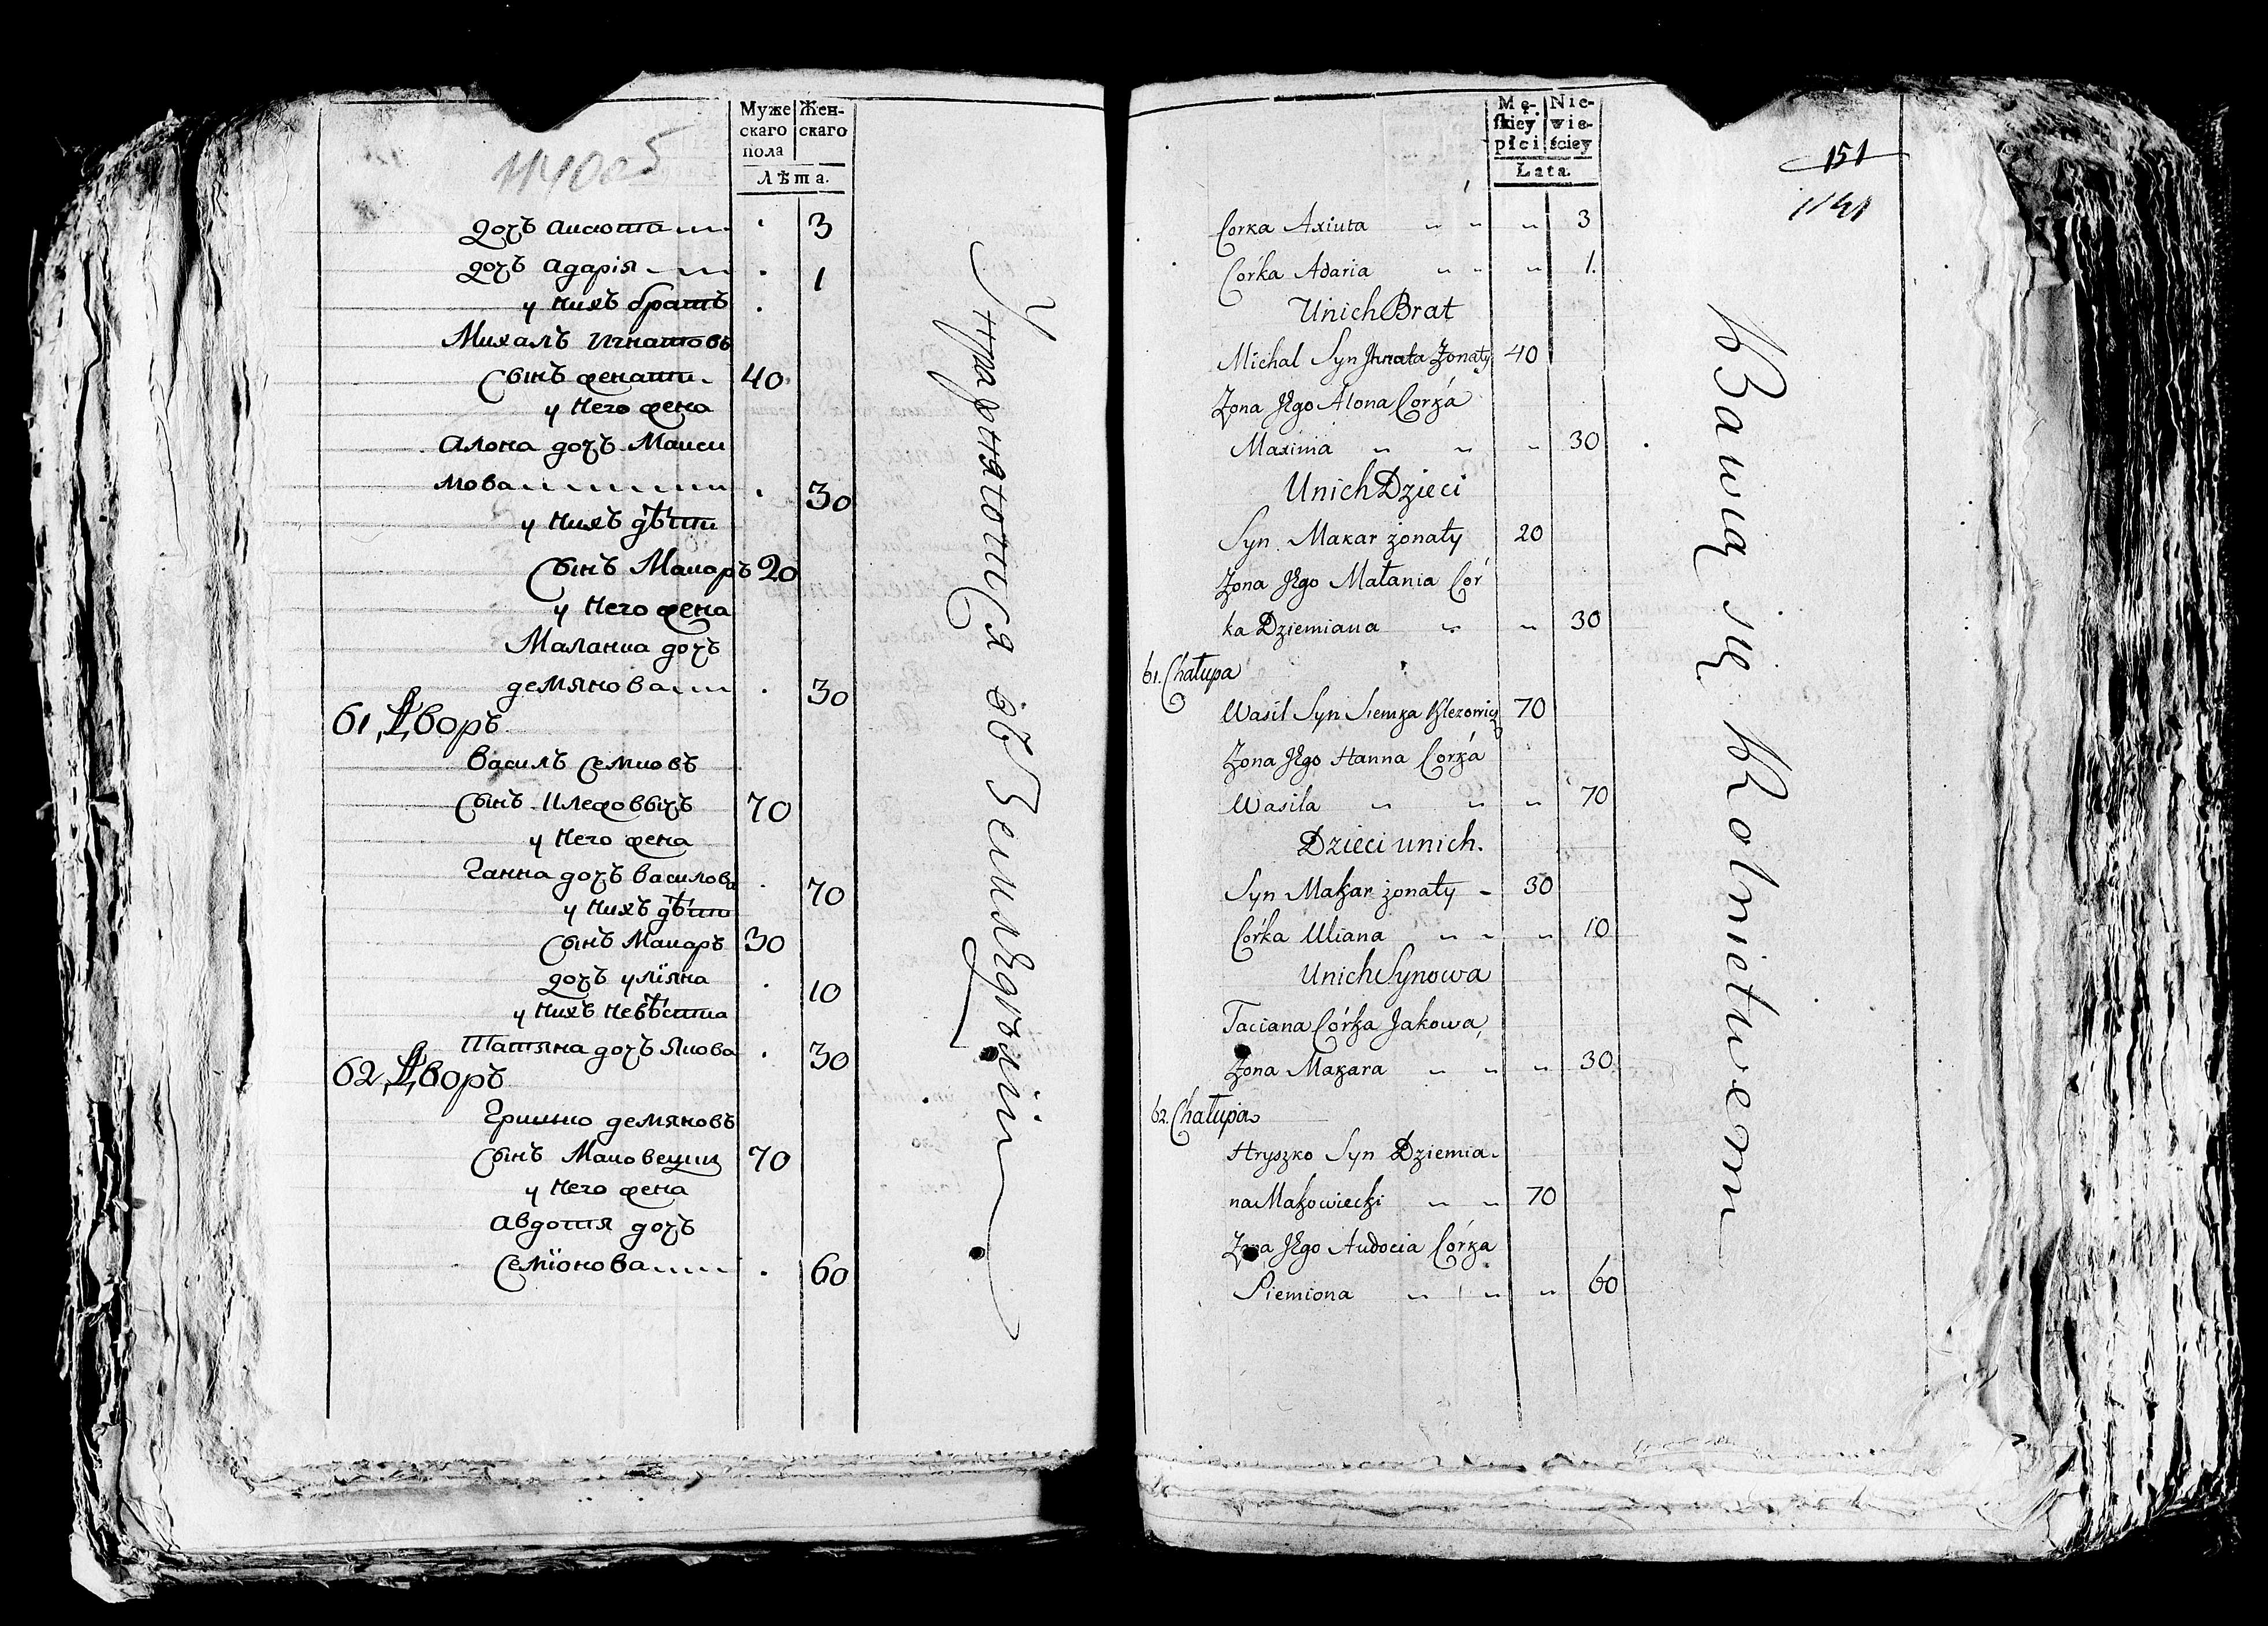 1140об
Муже
скаго
пола
Жен-
скаго
Лѣта.
дочъ Аксюта 3
дочъ Адарія 1
у нихъ братъ
Михалъ Игнатовъ
сынъ женатъ 40
у него жена
Алона дочъ Макси
мова 30
у нихъ дѣти
сынъ Макаръ 20
у него жена
Маланиа дочъ
демянова 30
61, Дворъ
Василъ Семковъ
сынъ Клезовычъ 70
у него жена
Ганна дочъ Василова 70
у нихъ дѣти
сынъ Макаръ 30
дочъ уліяна 10
у нихъ невѣстка
Татяна дочъ Якова 30
62, Дворъ
Гришко демяновъ
сынъ Маковецки 70
у него жена
Авдотия дочъ
Семіонова 60
Упражняются въ Земледѣліи
Mę-
skiey
płci
Nie-
wie-
ściey
Łata.
151
1141
Corka Axiuta 3
Córka Adaria 1.
U nich Brat
Michal Syn Ihnata Żonaty 40
Żona Jego Alona Córka
Maxima 30
U nich Dzieci
Syn Makar żonaty 20
Żona Jego Małania Cór
ka Dziemiana 30
61. Chałupa
Wasil Syn Siemka Klezowicz 70
Żona Jego Hanna Córka
Wasila 70
Dzieci u nich.
Syn Makar żonaty 30
Córka Uliana 10
U nich Synowa
Taciana Córka Jakowa,
Żona Makara 30
62. Chałupa
Hryszko Syn Dziemia-
na Makowiecki 70
Żona Jego Audocia Córka
Siemiona 60
Bawią się Rolnictwem